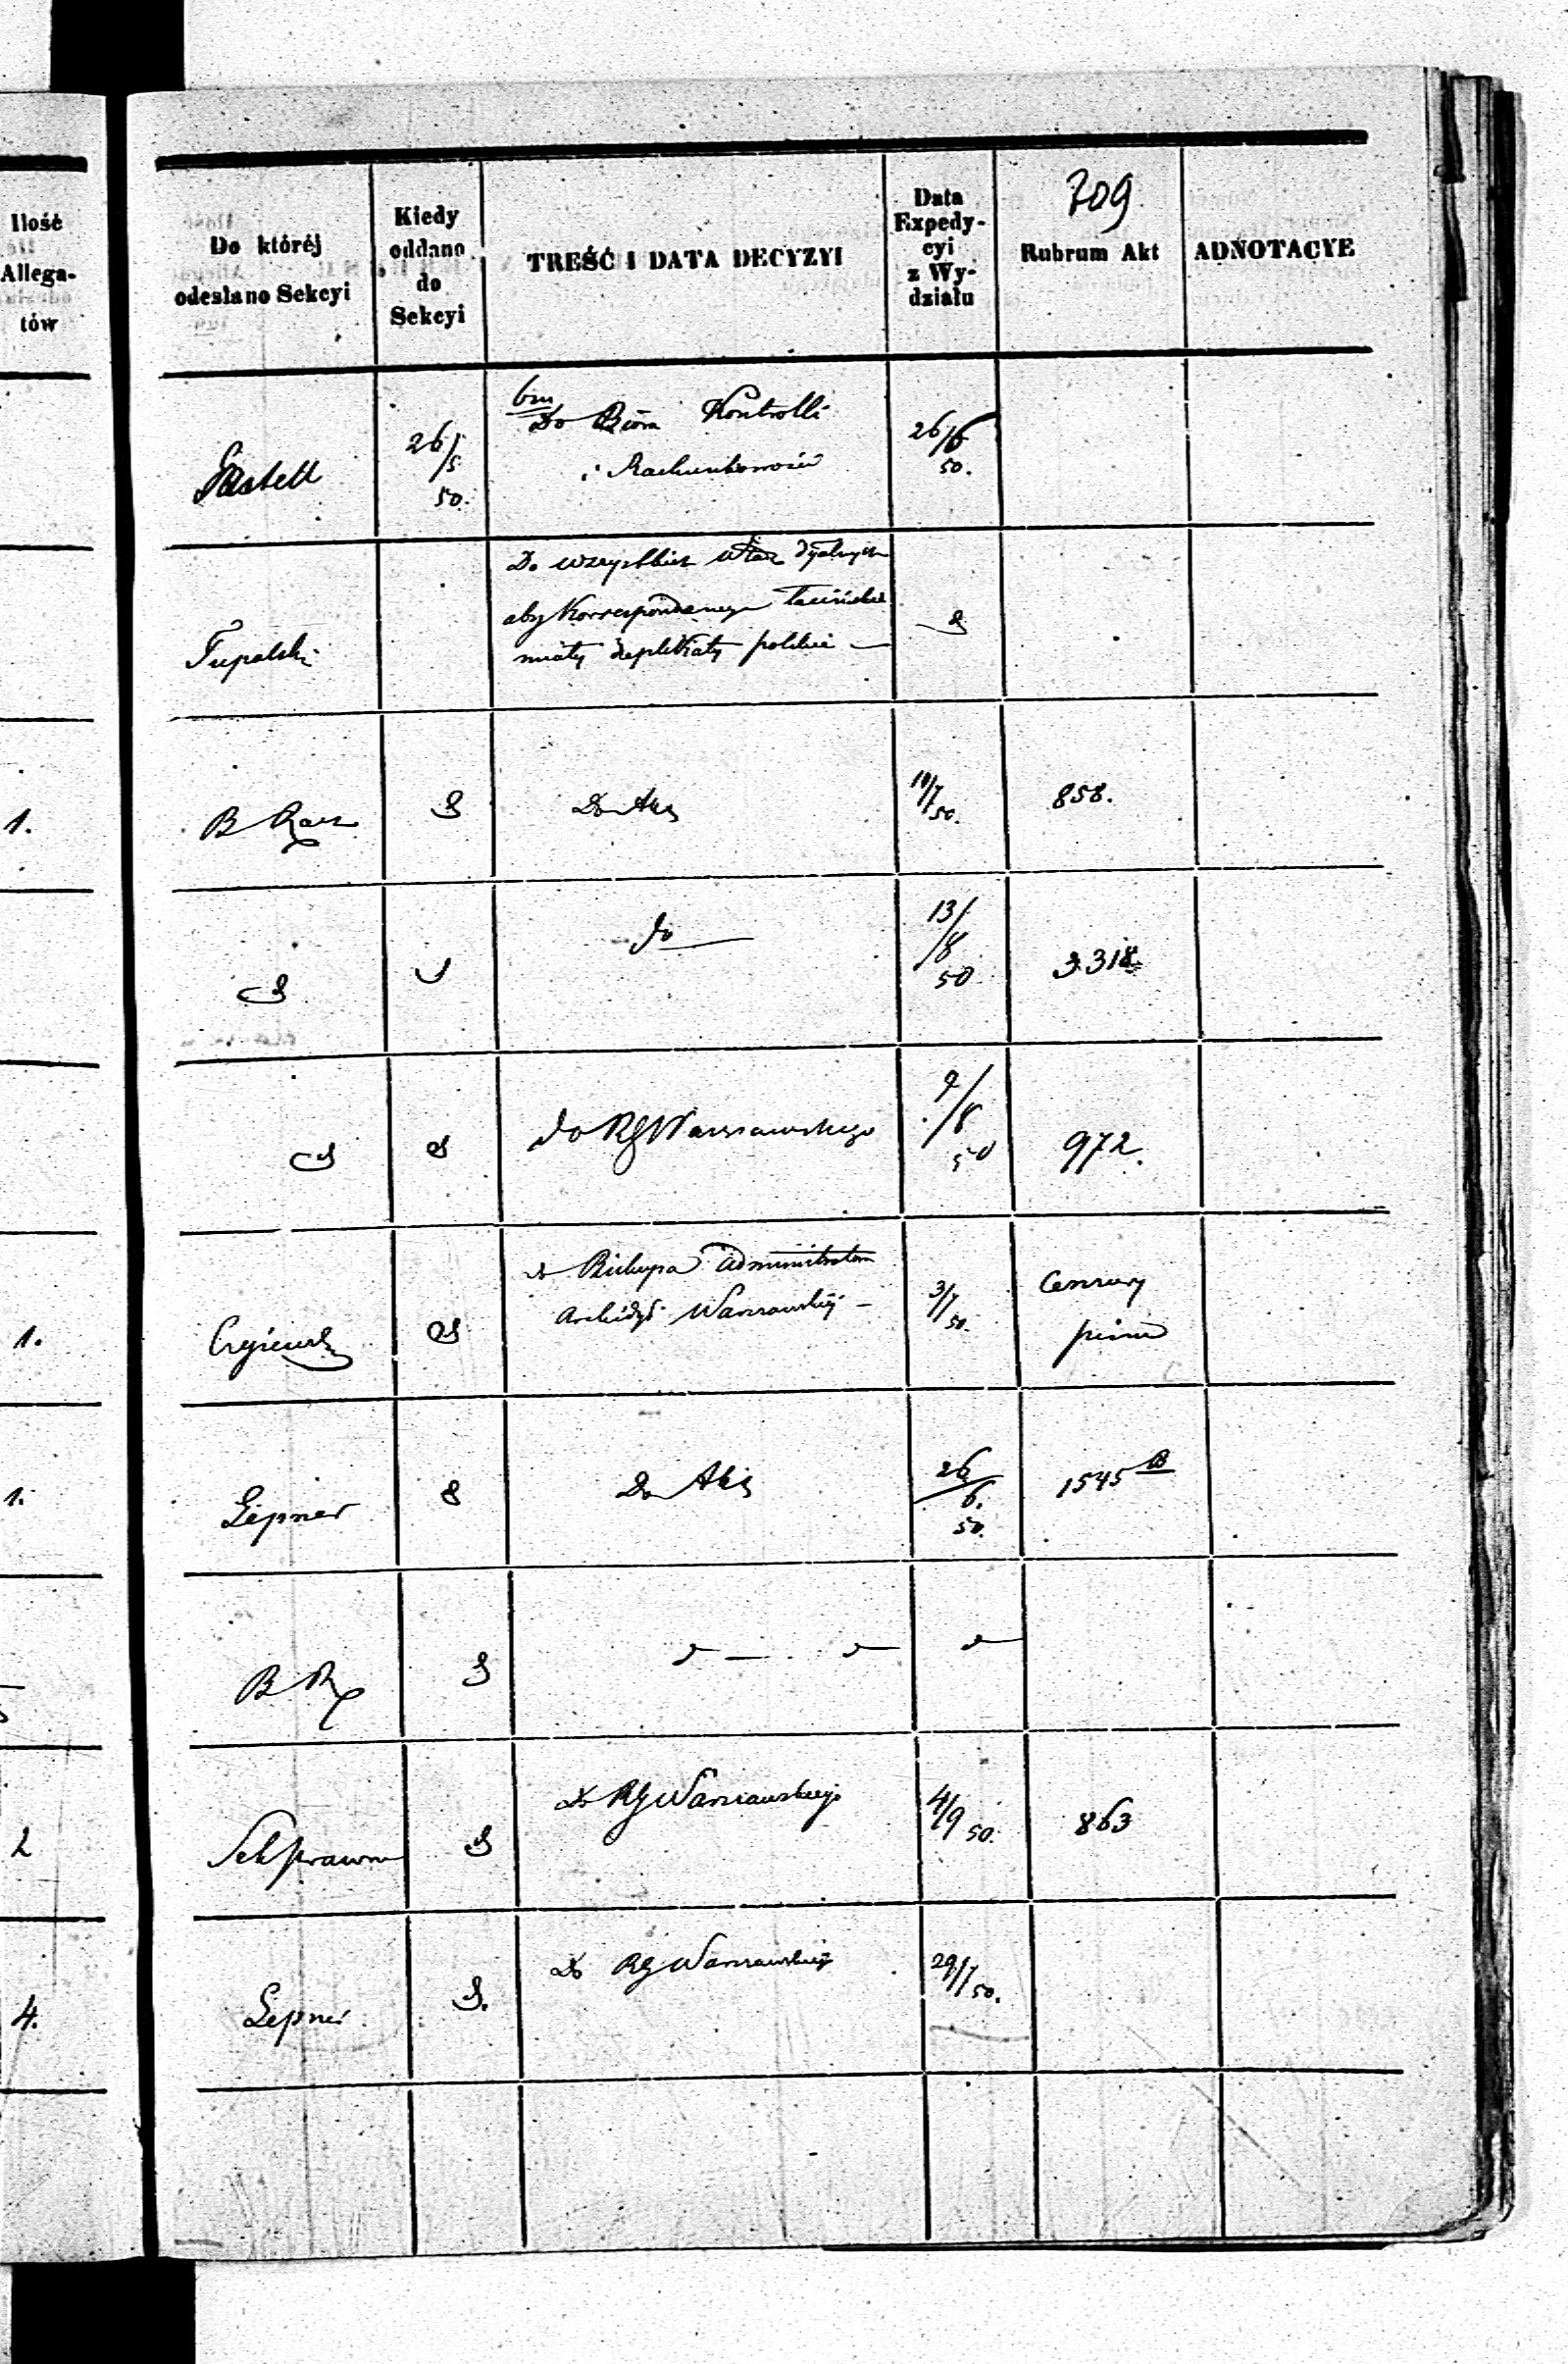 709
Ilość
Allega-
tów
Do któréj
odesłano Sekcyi
Kiedy
oddano
do
Sekcyi
TREŚĆ I DATA DECYZYI
Data
Expedy-
cyi
z Wy-
działu
Rubrum Akt
ADNOTACYE
26/5
50.
Do Biura Kontrolli
i Rachunkowości
26/6
50.
Tupalski
Do wszystkich Władz
aby Korrespondencye łacińskie
miały duplikaty polskie —
1.
B Rach
Do Akt
10/7
50.
858.
do
13/
/8
50
3318
do RGWarszawskiego
9/
/8
50
972.
1.
do Biskupa Administratora
Archidyi Warszawskiéj —
3/7
50.
Cenzury
pism
1.
Lepner
Do Akt
26
6.
50.
1545 B
B R
2
Sek prawna
Do RGWarszawskiego
4/9 50.
863
4.
Lepner
Do RG Warszawskiego
29/7 50.